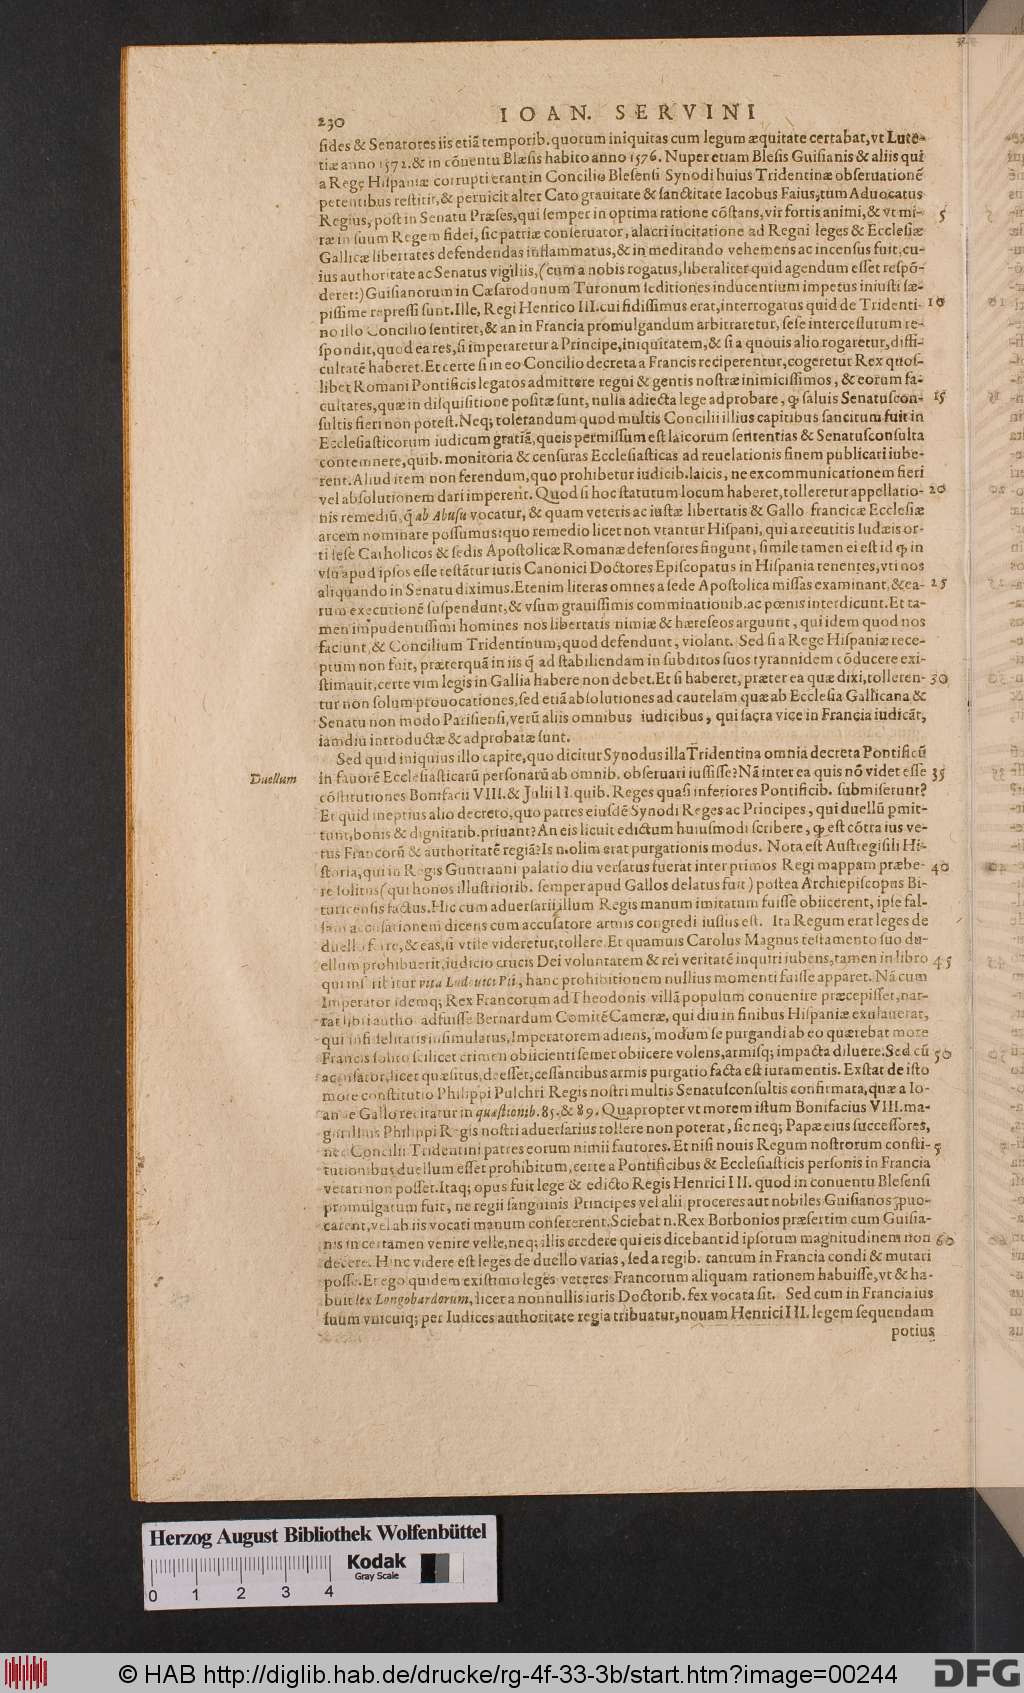 230 IOAN. SERVINI
fides & Senatores iis etiã temporib. quorum iniquitas cum legum æquitate certabat, vt Lute-
tiæ anno 1572. & in cõuentu Blæsis habito anno 1576. Nuper etiam Blesis Guisianis & aliis qui
a Rege Hispaniæ corrupti erant in Concilio Blesensi Synodi huius Tridentinæ obseruationē
petentibus restitit, & peruicit alter Cato grauitate & sanctitate Iacobus Faius, tum Aduocatus
Regius, post in Senatu Præses, qui semper in optima ratione cõstans, vir fortis animi, & vt mi- 5
ræ in suum Regem fidei, sic patriæ conseruator, alacri incitatione ad Regni leges & Ecclesiæ
Gallicæ libertates defendendas inflammatus, & in meditando vehemens ac incensus fuit, cu-
ius authoritate ac Senatus vigiliis, (cum a nobis rogatus, liberaliter quid agendum esset respõ-
deret:) Guisianorum in Cæsarodunum Turonum seditiones inducentium impetus iniusti sæ-
pissime repressi sunt. Ille, Regi Henrico III. cui fidissimus erat, interrogatus quid de Tridenti- 10
no illo Concilio sentiret, & an in Francia promulgandum arbitraretur, sese intercessurum re-
spondit, quod ea res, si imperaretur a Principe, iniquitatem, & si a quouis alio rogaretur, diffi-
cultatē haberet. Et certe si in eo Concilio decreta a Francis reciperentur, cogeretur Rex quos-
libet Romani Pontificis legatos admittere regni & gentis nostræ inimicissimos, & eorum fa-
cultates, quæ in disquisitione positæ sunt, nulla adiecta lege adprobare, ꝙ saluis Senatuscon- 15
sultis fieri non potest. Neq; tolerandum quod multis Concilii illius capitibus sancitum fuit in
Ecclesiasticorum iudicum gratiã, queis permissum est laicorum sententias & Senatusconsulta
contemnere, quib. monitoria & censuras Ecclesiasticas ad reuelationis finem publicari iube-
rent. Aliud item non ferendum, quo prohibetur iudicib. laicis, ne excommunicationem fieri
vel absolutionem dari imperent. Quod si hoc statutum locum haberet, tolleretur appellatio- 20
nis remediũ, q̃ ab Abusu vocatur, & quam veteris ac iustæ libertatis & Gallo francicæ Ecclesiæ
arcem nominare possumus: quo remedio licet non vtantur Hispani, qui a recutitis Iudæis or-
ti sese Catholicos & sedis Apostolicæ Romanæ defensores fingunt, simile tamen ei est id ꝙ in
vsu apud ipsos esse testãtur iuris Canonici Doctores Episcopatus in Hispania tenentes, vti nos
aliquando in Senatu diximus. Etenim literas omnes a sede Apostolica missas examinant, & ea- 25
rum executionē suspendunt, & vsum grauissimis comminationib. ac pœnis interdicunt. Et ta-
men impudentissimi homines nos libertatis nimiæ & hæreseos arguunt, qui idem quod nos
faciunt, & Concilium Tridentinum, quod defendunt, violant. Sed si a Rege Hispaniæ rece-
ptum non fuit, præterquã in iis q̃ ad stabiliendam in subditos suos tyrannidem cõducere exi-
stimauit, certe vim legis in Gallia habere non debet. Et si haberet, præter ea quæ dixi, tolleren- 30
tur non solum prouocationes, sed etiã absolutiones ad cautelam quæ ab Ecclesia Gallicana &
Senatu non modo Parisiensi, verũ aliis omnibus iudicibus, qui sacra vice in Francia iudicãt,
iamdiu introductæ & adprobatæ sunt.
Sed quid iniquius illo capite, quo dicitur Synodus illa Tridentina omnia decreta Pontificũ
Duellum in fauorē Ecclesiasticarũ personarũ ab omnib. obseruari iussisse? Nã inter ea quis nõ videt esse 35
cõstitutiones Bonifacii VIII. & Julii II. quib. Reges quasi inferiores Pontificib. submiserunt?
Et quid ineptius alio decreto, quo patres eiusdē Synodi Reges ac Principes, qui duellũ ꝑmit-
tunt, bonis & dignitatib. priuant? An eis licuit edictum huiusmodi scribere, ꝙ est cõtra ius ve-
tus Francorũ & authoritatē regiã? Is n. olim erat purgationis modus. Nota est Austregisili Hi-
storia, qui in Regis Guntranni palatio diu versatus fuerat inter primos Regi mappam præbe- 40
re solitus (qui honos illustriorib. semper apud Gallos delatus fuit) postea Archiepiscopus Bi-
turicensis factus. Hic cum aduersarii illum Regis manum imitatum fuisse obiicerent, ipse fal-
sam accusationem dicens cum accusatore armis congredi iussus est. Ita Regum erat leges de
duello ferre, & eas, si vtile videretur, tollere. Et quamuis Carolus Magnus testamento suo du-
ellum prohibuerit, iudicio crucis Dei voluntatem & rei veritatē inquiri iubens, tamen in libro 45
qui inscribitur vita Ludouici Pii, hanc prohibitionem nullius momenti fuisse apparet. Nã cum
Imperator idemq; Rex Francorum ad Theodonis villã populum conuenire præcepisset, nar-
rat libri author adfuisse Bernardum Comitē Cameræ, qui diu in finibus Hispaniæ exulauerat,
qui infidelitatis insimulatus, Imperatorem adiens, modum se purgandi ab eo quærebat more
Francis solito scilicet crimen obiicienti semet obiicere volens, armisq; impacta diluere. Sed cũ 50
accusator, licet quæsitus, deesset, cessantibus armis purgatio facta est iuramentis. Exstat de isto
more constitutio Philippi Pulchri Regis nostri multis Senatusconsultis confirmata, quæ a Io-
anne Gallo recitatur in quæstionib. 85. & 89. Quapropter vt morem istum Bonifacius VIII. ma-
gis illius Philippi Regis nostri aduersarius tollere non poterat, sic neq; Papæ eius successores,
nec Concilii Tridentini patres eorum nimii fautores. Et nisi nouis Regum nostrorum consti- 5
tutionibus duellum esset prohibitum, certe a Pontificibus & Ecclesiasticis personis in Francia
vetari non posset. Itaq; opus fuit lege & edicto Regis Henrici III. quod in conuentu Blesensi
promulgatum fuit, ne regii sanguinis Principes vel alii proceres aut nobiles Guisianos ꝓuo-
carent, vel ab iis vocati manum consererent. Sciebat n. Rex Borbonios præsertim cum Guisia-
nis in certamen venire velle, neq; illis credere qui eis dicebant id ipsorum magnitudinem non 60
decere. Hinc videre est leges de duello varias, sed a regib. tantum in Francia condi & mutari
posse. Et ego quidem existimo leges veteres Francorum aliquam rationem habuisse, vt & ha-
buit lex Longobardorum, licet a nonnullis iuris Doctorib. fex vocata sit. Sed cum in Francia ius
suum vnicuiq; per Iudices authoritate regia tribuatur, nouam Henrici III. legem sequendam
potius
Herzog August Bibliothek Wolfenbüttel
Kodak
Gray Scale
0 1 2 3 4
© HAB http://diglib.hab.de/drucke/rg-4f-33-3b/start.htm?image=00244
DFG